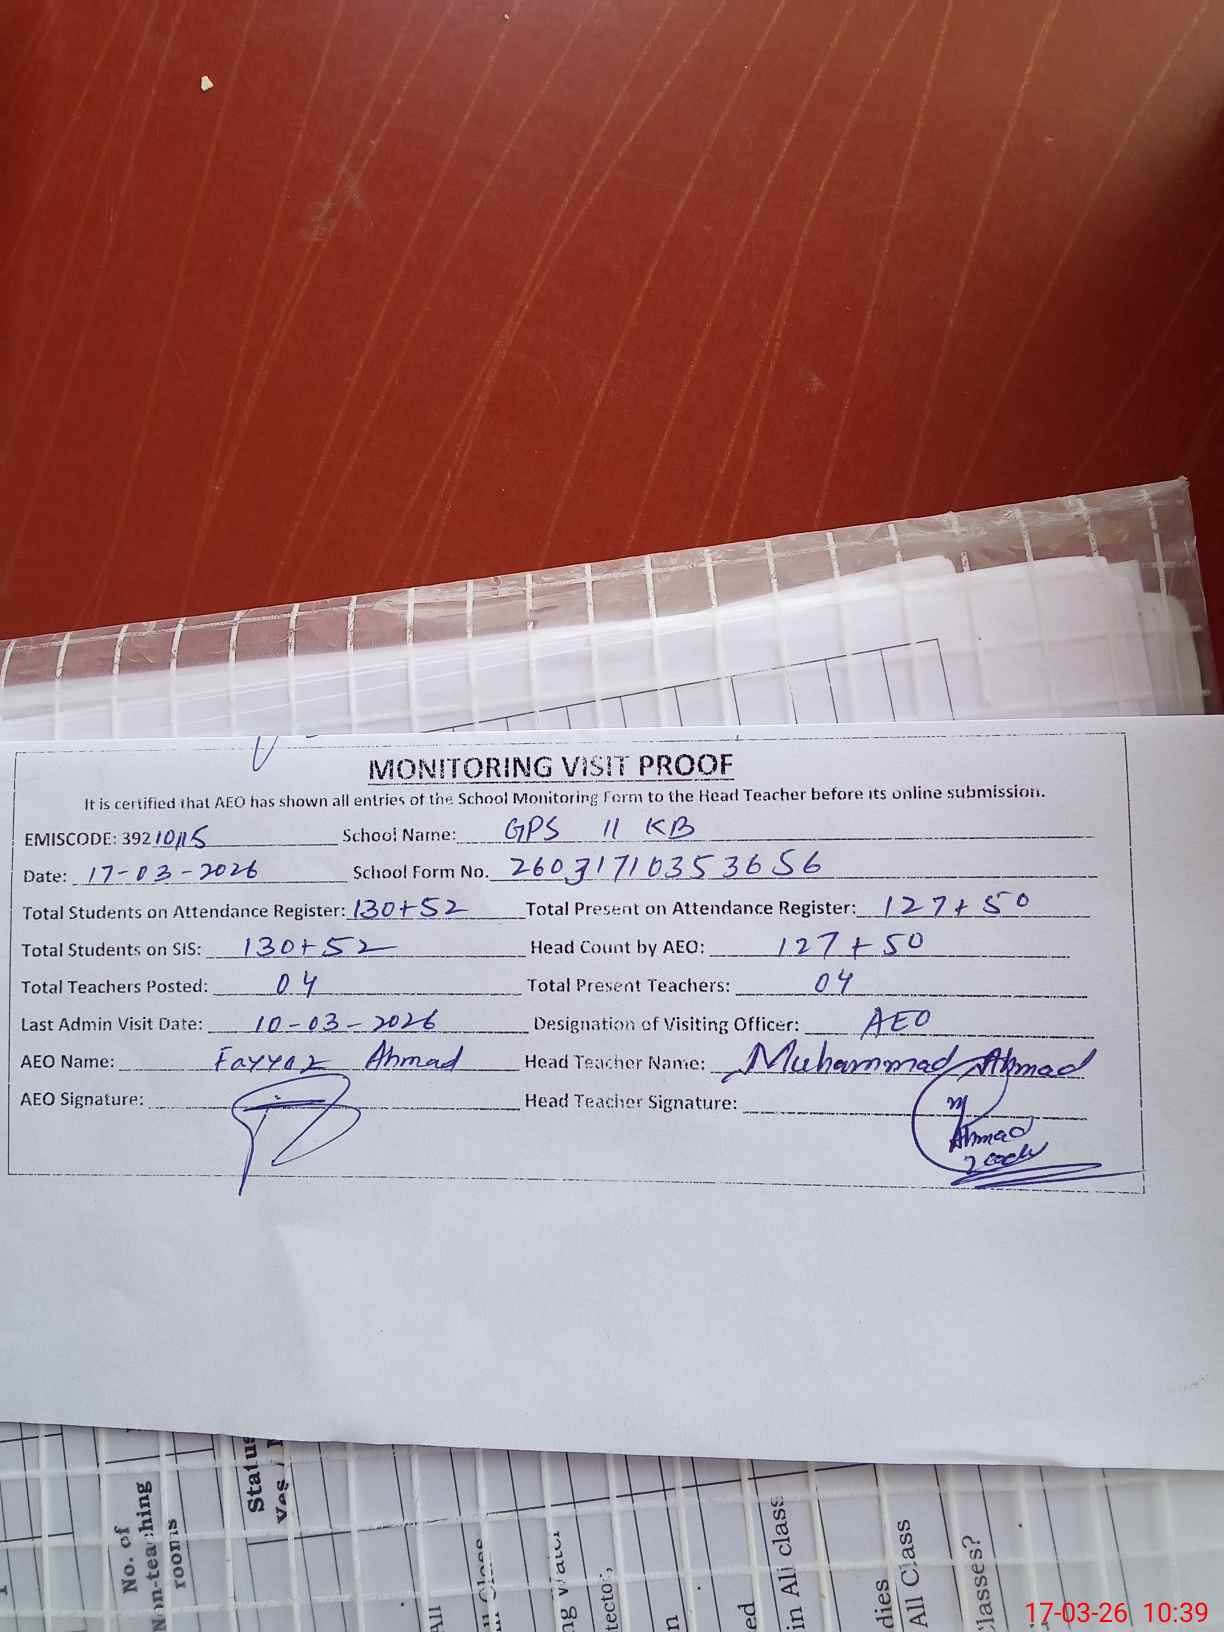 MONITORING VISIT PROOF
It is certified that AEO has shown all entries of the School Monitoring Form to the Head Teacher before its online submission.
EMISCODE: 39210115 School Name: GPS 11 KB
Date: 17-03-2026 School Form No. 26031710353656
Total Students on Attendance Register: 130+52 Total Present on Attendance Register: 127+50
Total Students on SIS: 130+52 Head Count by AEO: 127+50
Total Teachers Posted: 04 Total Present Teachers: 04
Last Admin Visit Date: 10-03-2026 Designation of Visiting Officer: AEO
AEO Name: Fayyaz Ahmad Head Teacher Name: Muhammad Ahmad
AEO Signature: Head Teacher Signature:
M
Ahmad
No. of
Non-teaching
rooms
Status
Yes /
All
in All class
dies
All Class
Classes?
17-03-26 10:39